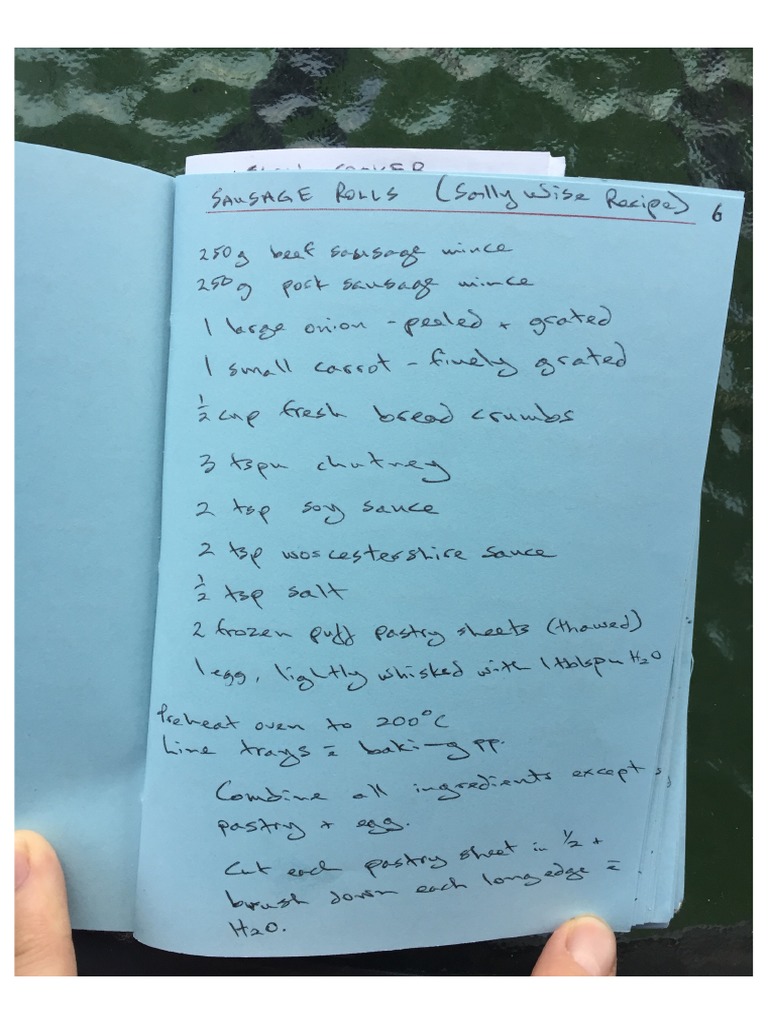 SLOW COOKER
SAUSAGE ROLLS (Sally Wise Recipe) 6
250g beef sausage mince
250g pork sausage mince
1 large onion - peeled + grated
1 small carrot - finely grated
½ cup fresh bread crumbs
3 tspn chutney
2 tsp soy sauce
2 tsp worcestershire sauce
½ tsp salt
2 frozen puff pastry sheets (thawed)
1 egg, lightly whisked with 1 tblspn H2O
Preheat oven to 200°C
Line trays c̄ baking pp.
Combine all ingredients except
pastry + egg.
Cut each pastry sheet in ½ +
brush down each long edge c̄
H2O.